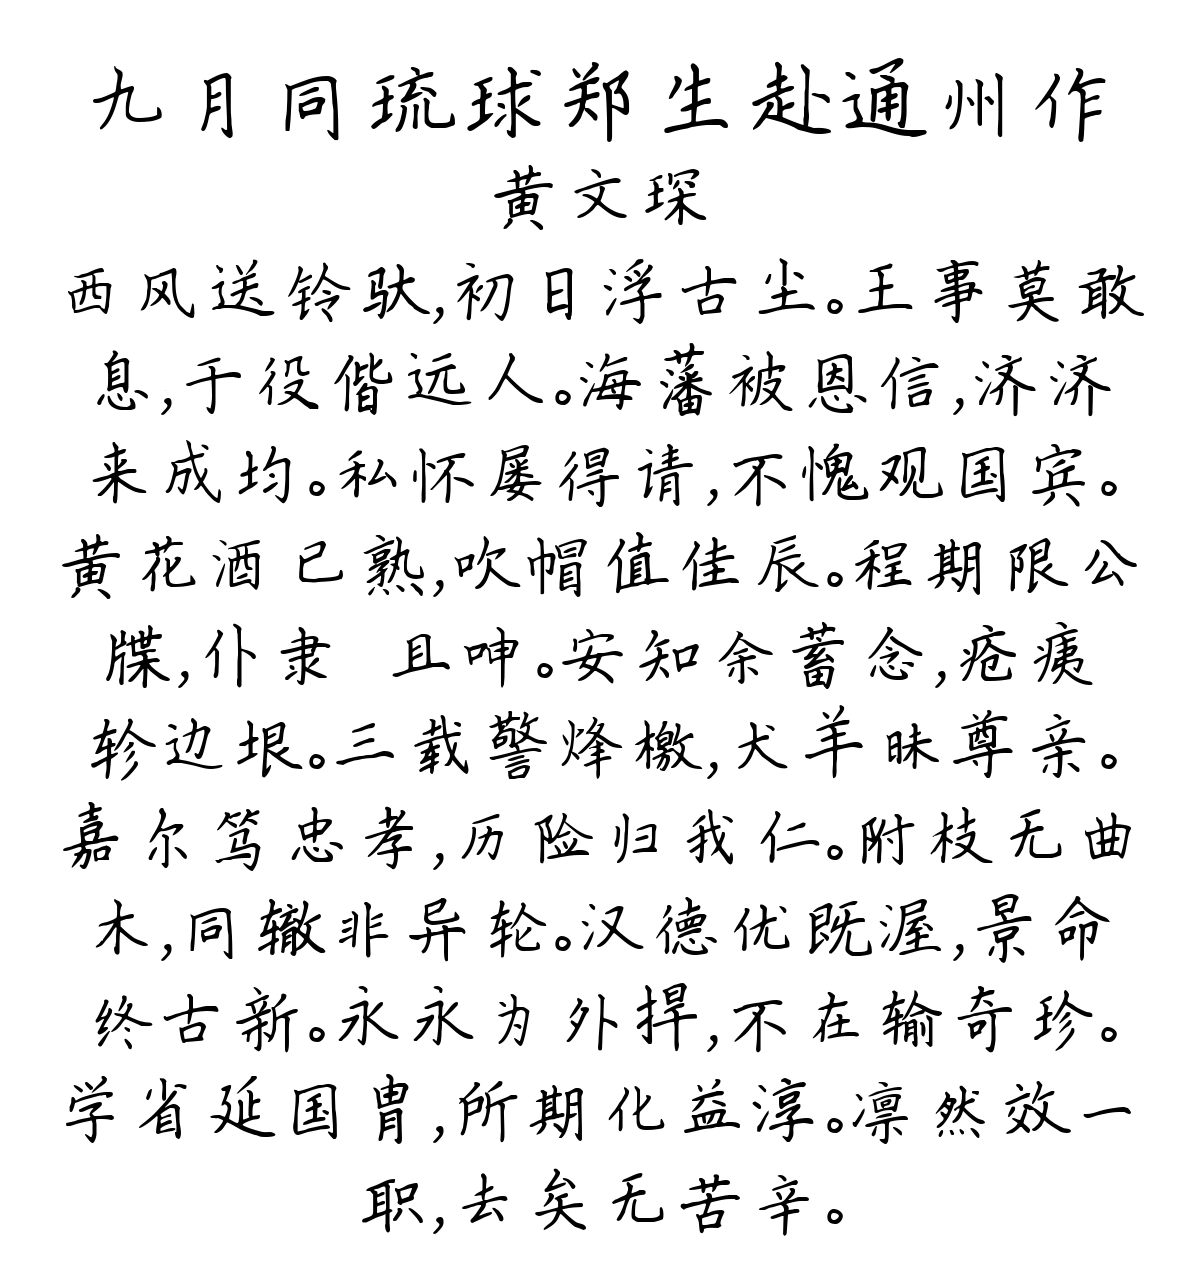 九月同琉球郑生赴通州作
黄文琛
西风送铃驮,初日浮古尘。王事莫敢
息,于役偕远人。海藩被恩信,济济
来成均。私怀屡得请,不愧观国宾。
黄花酒已熟,吹帽值佳辰。程期限公
牒,仆隶 且呻。安知余蓄念,疮痍
轸边垠。三载警烽檄,犬羊昧尊亲。
嘉尔笃忠孝,历险归我仁。附枝无曲
木,同辙非异轮。汉德优既渥,景命
终古新。永永为外捍,不在输奇珍。
学省延国胄,所期化益淳。凛然效一
职,去矣无苦辛。